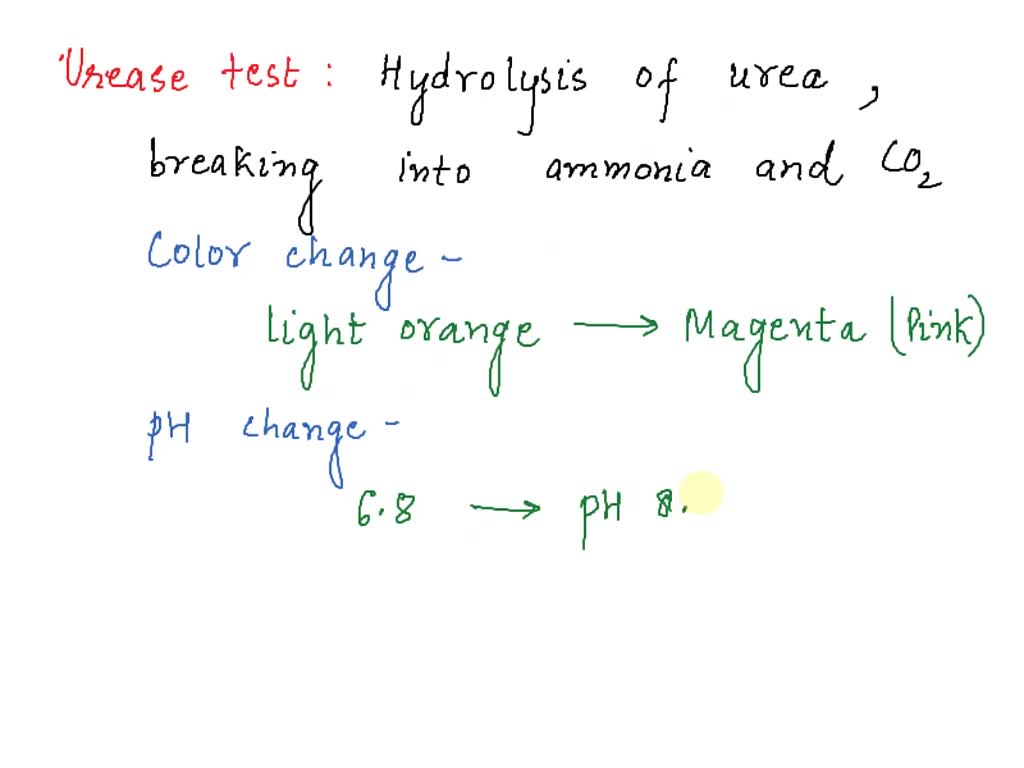 Urease test : Hydrolysis of urea ,
breaking into ammonia and CO₂
Color change -
light orange → Magenta (Pink)
pH change -
6.8 → pH 8.